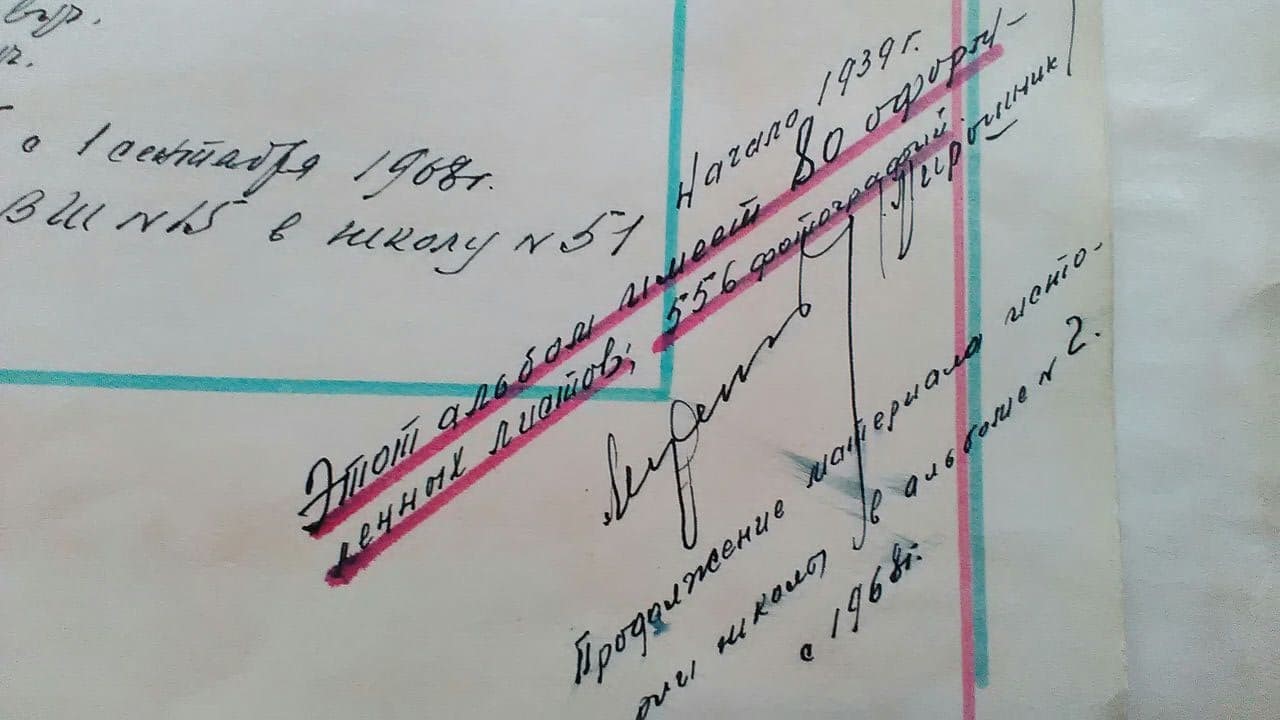 с 1 сентября 1968г.
ВШ №15 в школу №51
Начало 1939г.
Этот альбом имеет 80 оформ-
ленных листов; 556 фотографий.
Мирошник
Продолжение материала исто-
рии школы в альбоме №2.
с 1968г.